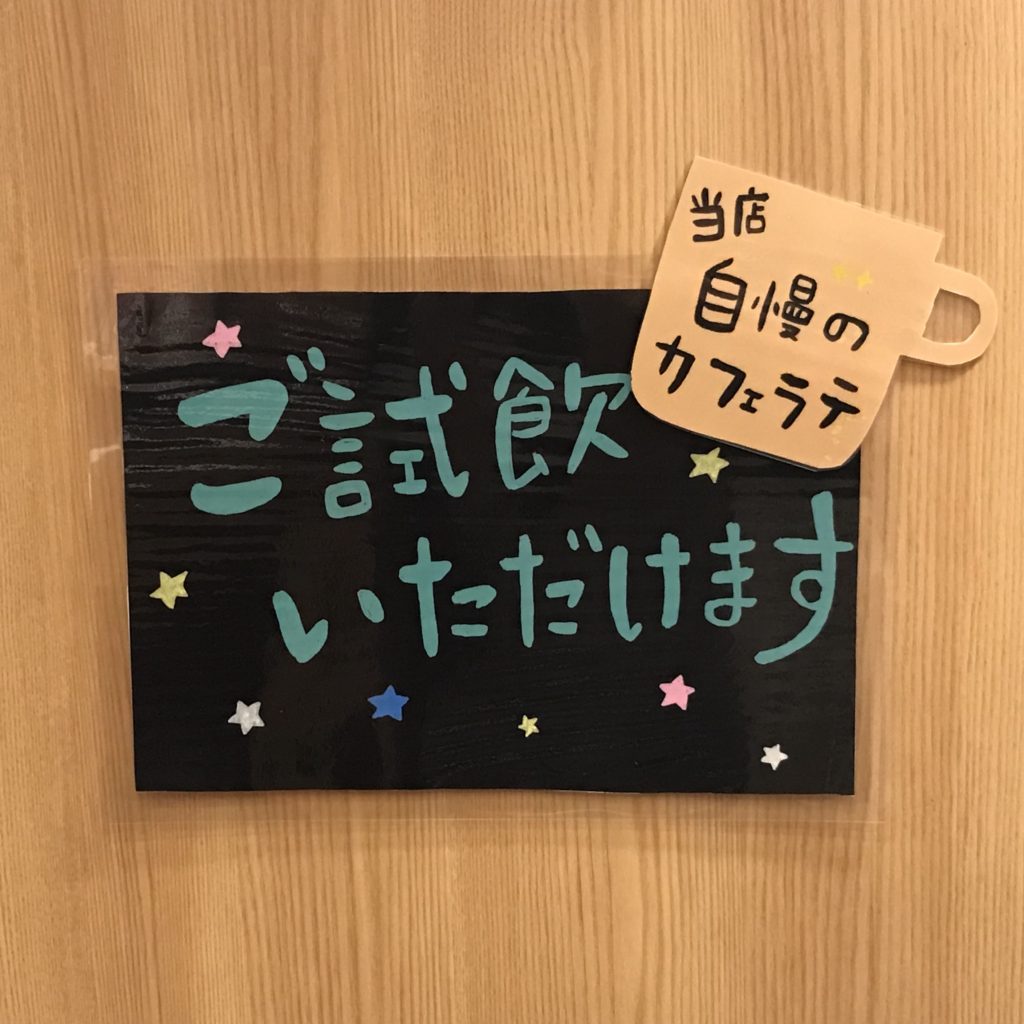 当店
自慢の
カフェラテ
ご試飲
いただけます